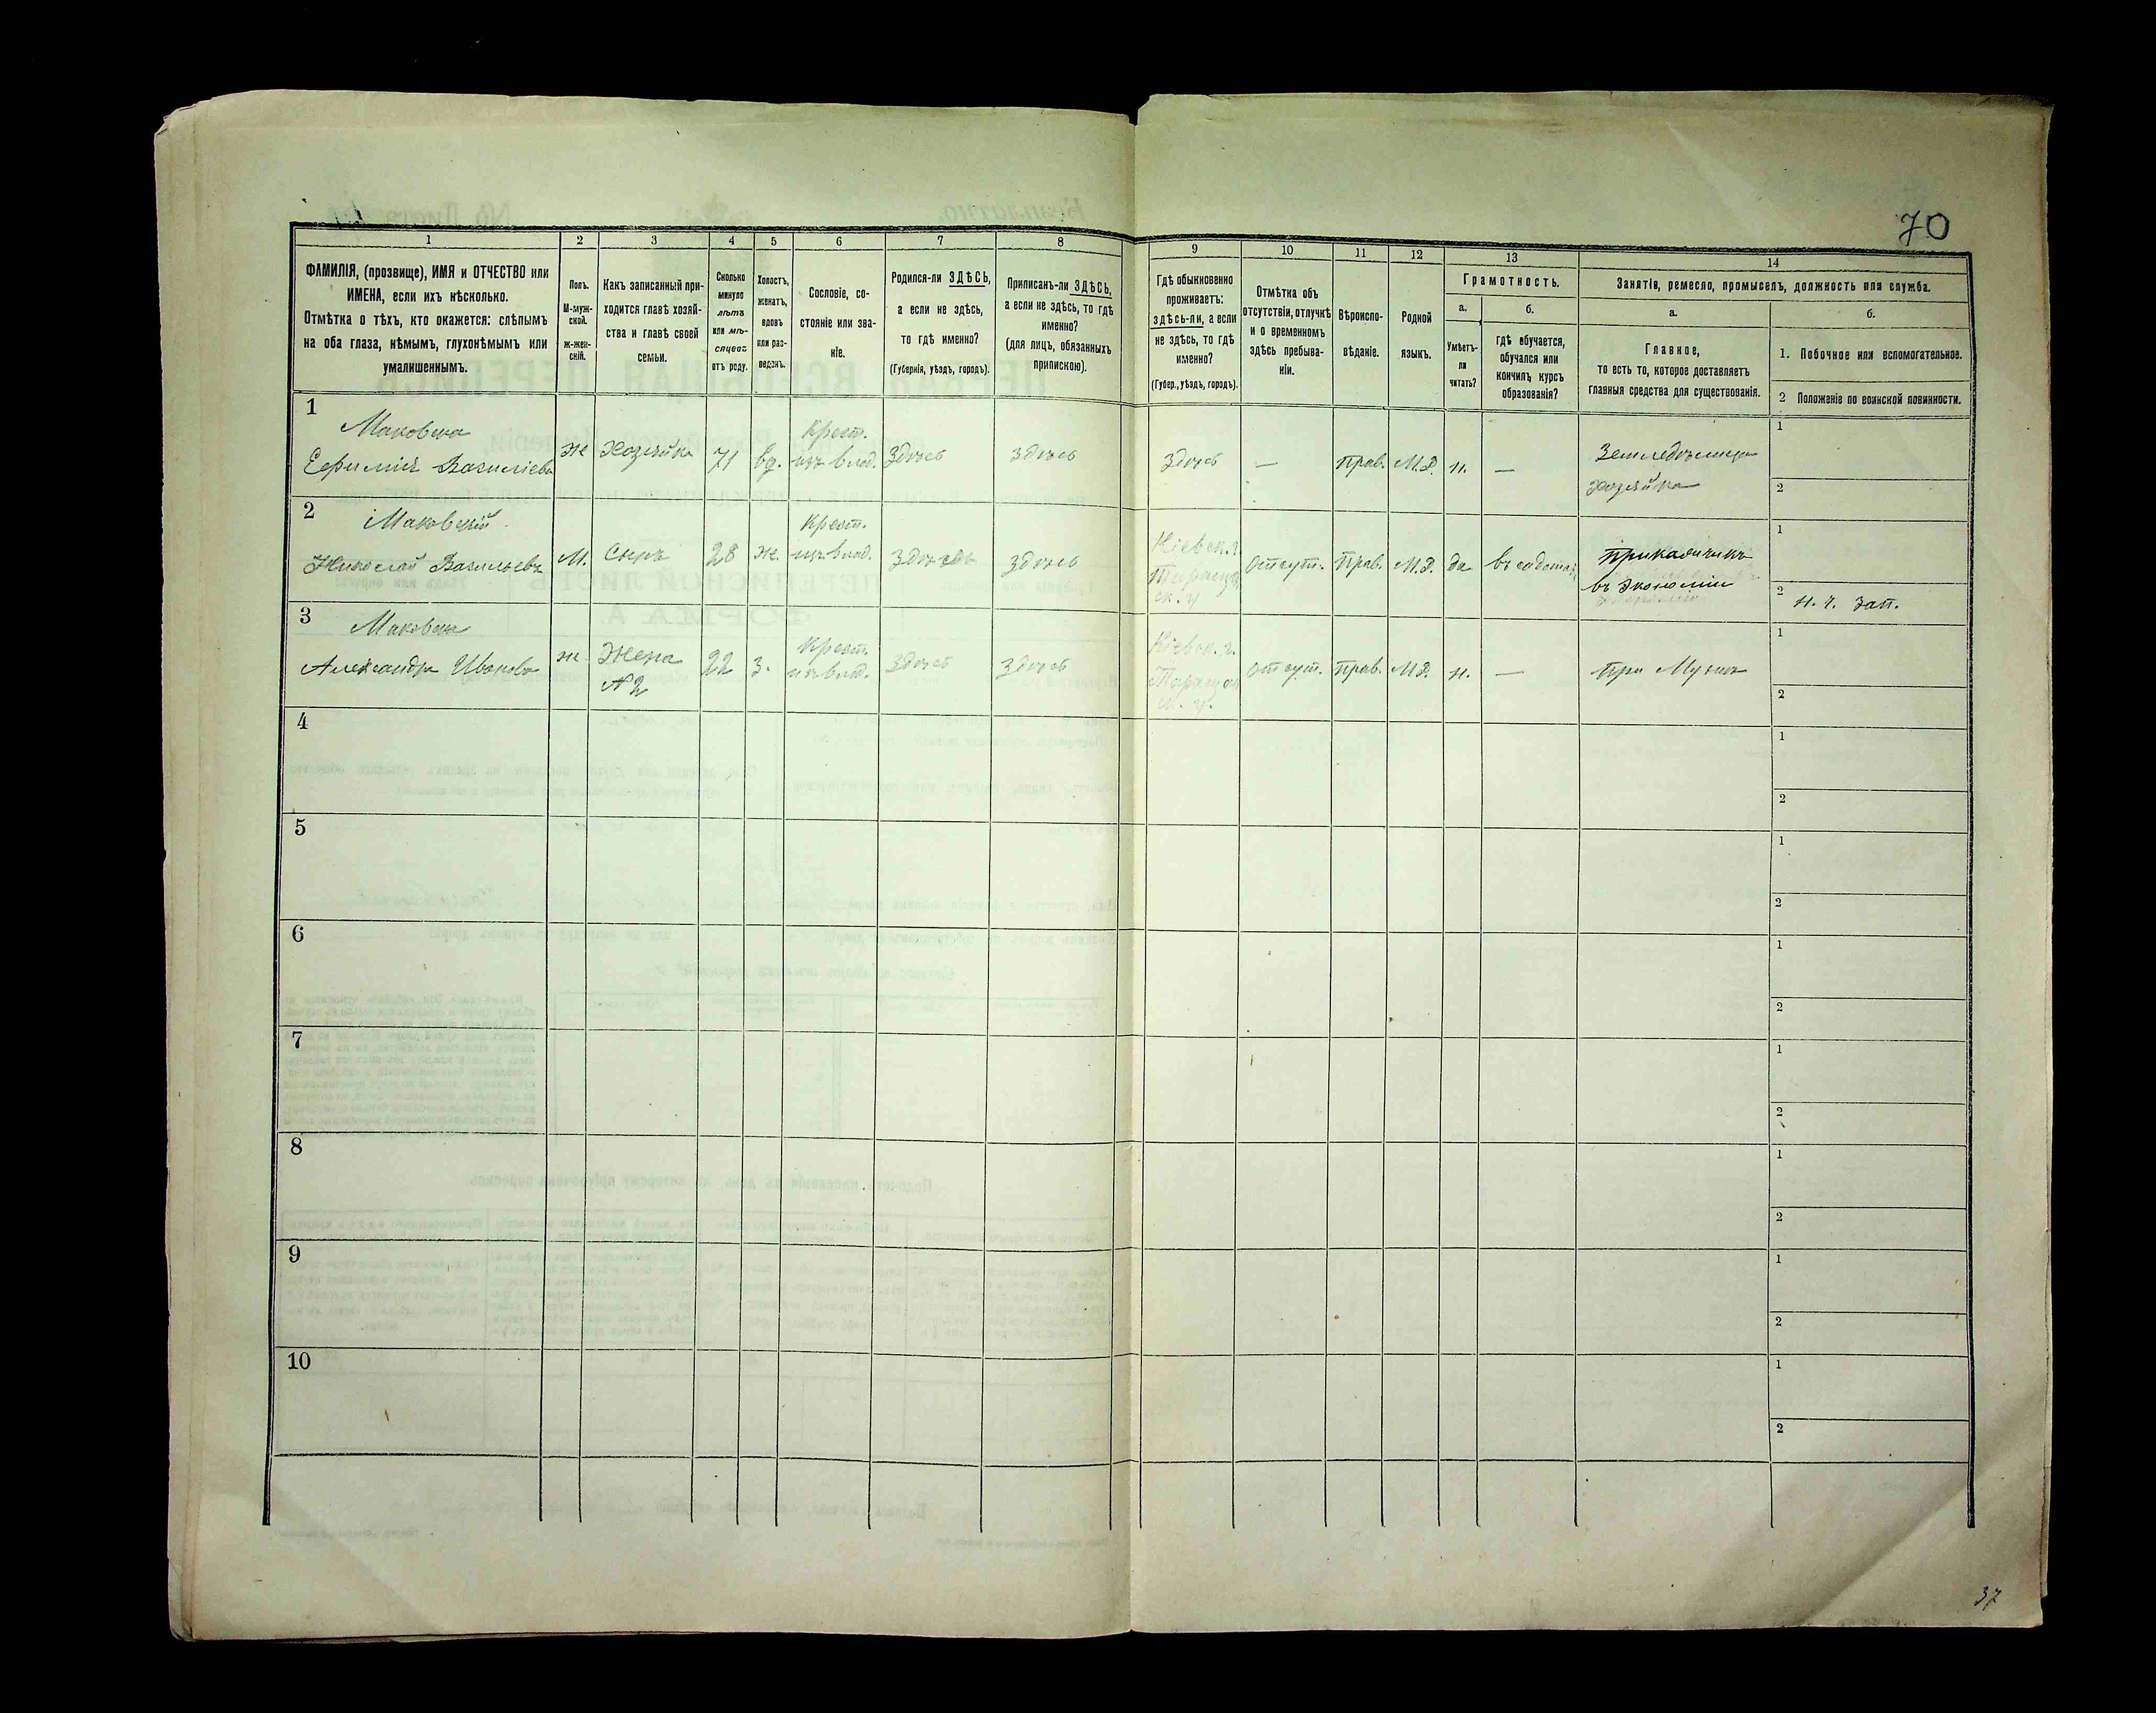 70
1
2
3
4
5
6
7
8
9
10
11
12
13
14
ФАМИЛІЯ, (прозвище), ИМЯ и ОТЧЕСТВО или
ИМЕНА, если ихъ нѣсколько.
Отмѣтка о тѣхъ, кто окажется: слѣпымъ
на оба глаза, нѣмымъ, глухонѣмымъ или
умалишеннымъ.
Полъ.
М-муж-
ской.
ж-жен-
скій.
Какъ записанный при-
ходится главѣ хозяй-
ства и главѣ своей
семьи.
Сколько
минуло
лѣтъ
или мѣ-
сяцевъ
отъ роду.
Холостъ,
женатъ,
вдовъ
или раз-
веденъ.
Сословіе, со-
стояніе или зва-
ніе.
Родился-ли ЗДѢСЬ,
а если не здѣсь,
то гдѣ именно?
(Губернія, уѣздъ, городъ).
Приписанъ-ли ЗДѢСЬ,
а если не здѣсь, то гдѣ
именно?
(для лицъ, обязанныхъ
припискою).
Гдѣ обыкновенно
проживаетъ:
здѣсь-ли, а если
не здѣсь, то гдѣ
именно?
(Губер., уѣздъ, городъ).
Отмѣтка объ
отсутствіи, отлучкѣ
и о временномъ
здѣсь пребыва-
ніи.
Вѣроиспо-
вѣданіе.
Родной
языкъ.
Грамотность.
а.
Умѣетъ-
ли
читать?
б.
гдѣ обучается,
обучался или
кончилъ курсъ
образованія?
Занятія, ремесло, промыселъ, должность или служба.
а.
Главное,
то есть то, которое доставляетъ
главныя средства для существованія.
б.
1. Побочное или вспомогательное.
2 Положеніе по воинской повинности.
1
Маковска
Ефимія Василіева
Ж
Хозяйка
71
вд.
Крест.
изъ влад.
Здѣсь
Здѣсь
Здѣсь
—
Прав.
М.Р.
н.
—
Земледѣлица
хозяйка
1
2
2
Маковскій
Николай Васильевъ
М.
Сынъ
28
ж.
Крест.
изъ влад.
Здѣсь
Здѣсь
Кіевск. г.
Таращан
ск. у
отсут.
Прав.
М.Р.
да
въ
Прикащикъ
въ Экономіи
1
2
н. ч. зап.
3
Маковска
Александра Иванова
ж.
Жена
№2
22
з.
Крест.
изъ влад.
Здѣсь
Здѣсь
Кіевск. г.
Таращан
ск. у.
отсут.
Прав.
М.Р.
н.
—
При Мужѣ
1
2
4
1
2
5
1
2
6
1
2
7
1
2
8
1
2
9
1
2
10
1
2
37